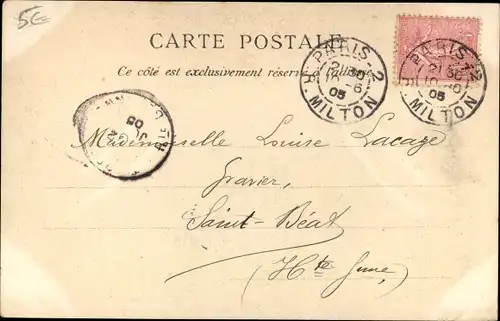 5€
CARTE POSTALE
Ce côté est exclusivement réservé à l'adresse
R. PARIS - 2
21 30
10 - 6
05
MILTON
PARIS
21 30
05
MILTON
05
Mademoiselle Louise Lacaze
Gravier,
Saint-Béat
(Hte Gne)